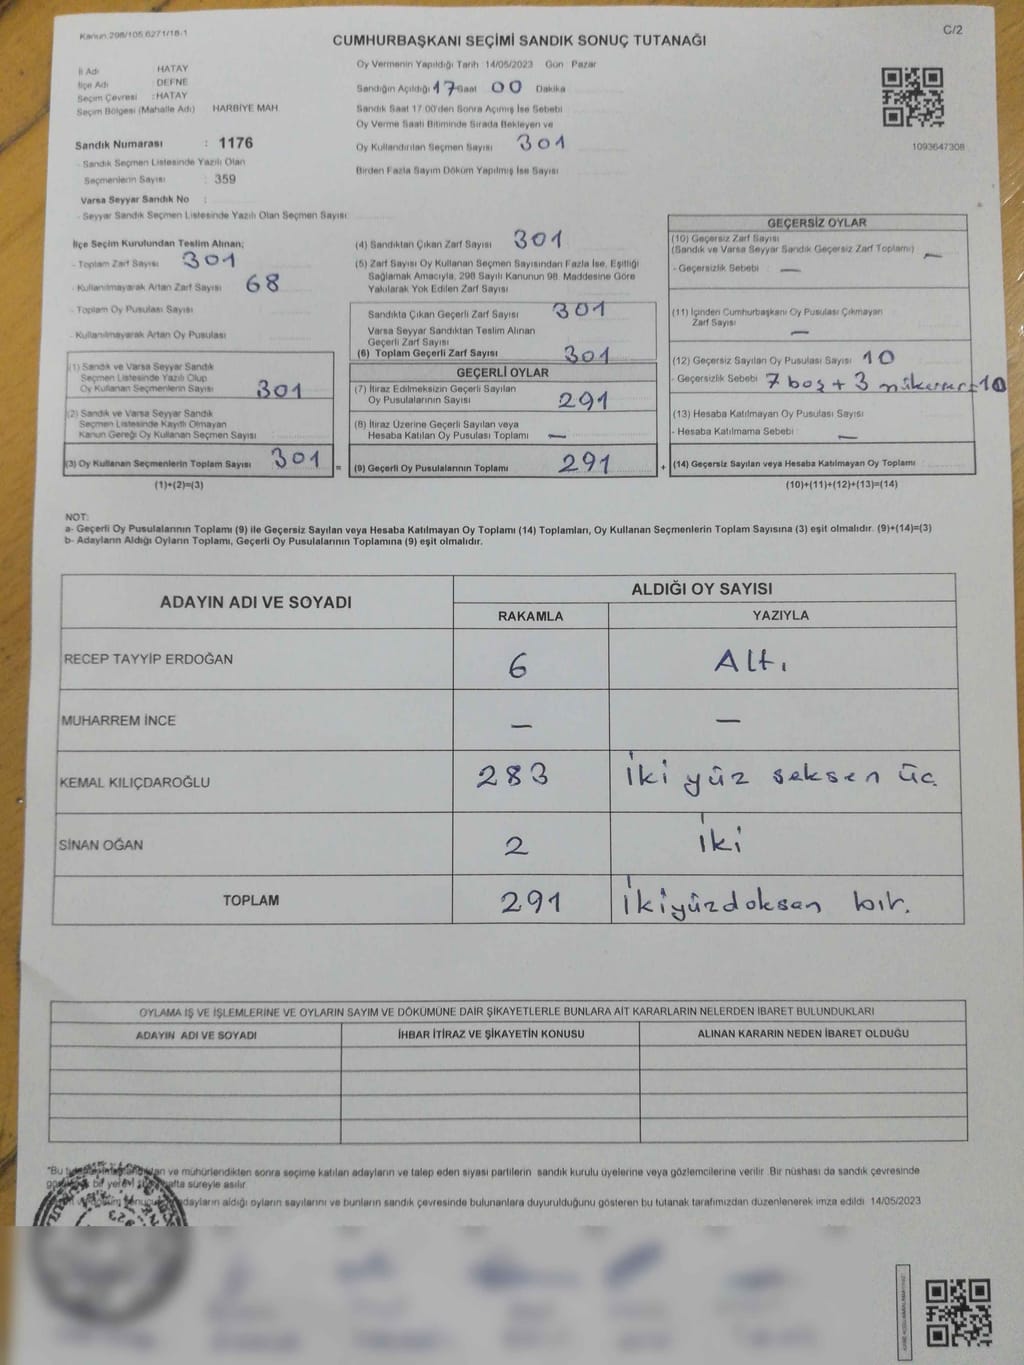 Kanun.298/105,6271/18-1
C/2
CUMHURBAŞKANI SEÇİMİ SANDIK SONUÇ TUTANAĞI
İl Adı HATAY
İlçe Adı DEFNE
Seçim Çevresi : HATAY
Seçim Bölgesi (Mahalle Adı) HARBİYE MAH.
Sandık Numarası : 1176
- Sandık Seçmen Listesinde Yazılı Olan
Seçmenlerin Sayısı : 359
Varsa Seyyar Sandık No :
- Seyyar Sandık Seçmen Listesinde Yazılı Olan Seçmen Sayısı
Oy Vermenin Yapıldığı Tarih 14/05/2023 Gün Pazar
Sandığın Açıldığı 17 Saat 00 Dakika
Sandık Saat 17.00'den Sonra Açılmış İse Sebebi
Oy Verme Saati Bitiminde Sırada Bekleyen ve
Oy Kullandırılan Seçmen Sayısı 301
Birden Fazla Sayım Döküm Yapılmış İse Sayısı
1093647308
İlçe Seçim Kurulundan Teslim Alınan;
- Toplam Zarf Sayısı 301
- Kullanılmayarak Artan Zarf Sayısı 68
- Toplam Oy Pusulası Sayısı
- Kullanılmayarak Artan Oy Pusulası
(1) Sandık ve Varsa Seyyar Sandık
Seçmen Listesinde Yazılı Olup
Oy Kullanan Seçmenlerin Sayısı 301
(2) Sandık ve Varsa Seyyar Sandık
Seçmen Listesinde Kayıtlı Olmayan
Kanun Gereği Oy Kullanan Seçmen Sayısı
(3) Oy Kullanan Seçmenlerin Toplam Sayısı 301 =
(1)+(2)=(3)
(4) Sandıktan Çıkan Zarf Sayısı 301
(5) Zarf Sayısı Oy Kullanan Seçmen Sayısından Fazla İse, Eşitliği
Sağlamak Amacıyla, 298 Sayılı Kanunun 98. Maddesine Göre
Yakılarak Yok Edilen Zarf Sayısı
Sandıkta Çıkan Geçerli Zarf Sayısı 301
Varsa Seyyar Sandıktan Teslim Alınan
Geçerli Zarf Sayısı
(6) Toplam Geçerli Zarf Sayısı 301
GEÇERLİ OYLAR
(7) İtiraz Edilmeksizin Geçerli Sayılan
Oy Pusulalarının Sayısı 291
(8) İtiraz Üzerine Geçerli Sayılan veya
Hesaba Katılan Oy Pusulası Toplamı —
(9) Geçerli Oy Pusulalarının Toplamı 291 +
GEÇERSİZ OYLAR
(10) Geçersiz Zarf Sayısı
(Sandık ve Varsa Seyyar Sandık Geçersiz Zarf Toplamı) —
- Geçersizlik Sebebi : —
(11) İçinden Cumhurbaşkanı Oy Pusulası Çıkmayan
Zarf Sayısı —
(12) Geçersiz Sayılan Oy Pusulası Sayısı 10
- Geçersizlik Sebebi 7 boş + 3 mükerrer = 10
(13) Hesaba Katılmayan Oy Pusulası Sayısı
- Hesaba Katılmama Sebebi : —
(14) Geçersiz Sayılan veya Hesaba Katılmayan Oy Toplamı
(10)+(11)+(12)+(13)=(14)
NOT:
a- Geçerli Oy Pusulalarının Toplamı (9) ile Geçersiz Sayılan veya Hesaba Katılmayan Oy Toplamı (14) Toplamları, Oy Kullanan Seçmenlerin Toplam Sayısına (3) eşit olmalıdır. (9)+(14)=(3)
b- Adayların Aldığı Oyların Toplamı, Geçerli Oy Pusulalarının Toplamına (9) eşit olmalıdır.
ADAYIN ADI VE SOYADI ALDIĞI OY SAYISI
RAKAMLA YAZIYLA
RECEP TAYYİP ERDOĞAN 6 Altı
MUHARREM İNCE — —
KEMAL KILIÇDAROĞLU 283 İki yüz seksen üç
SİNAN OĞAN 2 İki
TOPLAM 291 İkiyüzdoksan bir.
OYLAMA İŞ VE İŞLEMLERİNE VE OYLARIN SAYIM VE DÖKÜMÜNE DAİR ŞİKAYETLERLE BUNLARA AİT KARARLARIN NELERDEN İBARET BULUNDUKLARI
ADAYIN ADI VE SOYADI İHBAR İTİRAZ VE ŞİKAYETİN KONUSU ALINAN KARARIN NEDEN İBARET OLDUĞU
*Bu ve mühürlendikten sonra seçime katılan adayların ve talep eden siyasi partilerin sandık kurulu üyelerine veya gözlemcilerine verilir. Bir nüshası da sandık çevresinde
bir yere hafta süreyle asılır.
adayların aldığı oyların sayılarını ve bunların sandık çevresinde bulunanlara duyurulduğunu gösteren bu tutanak tarafımızdan düzenlenerek imza edildi. 14/05/2023